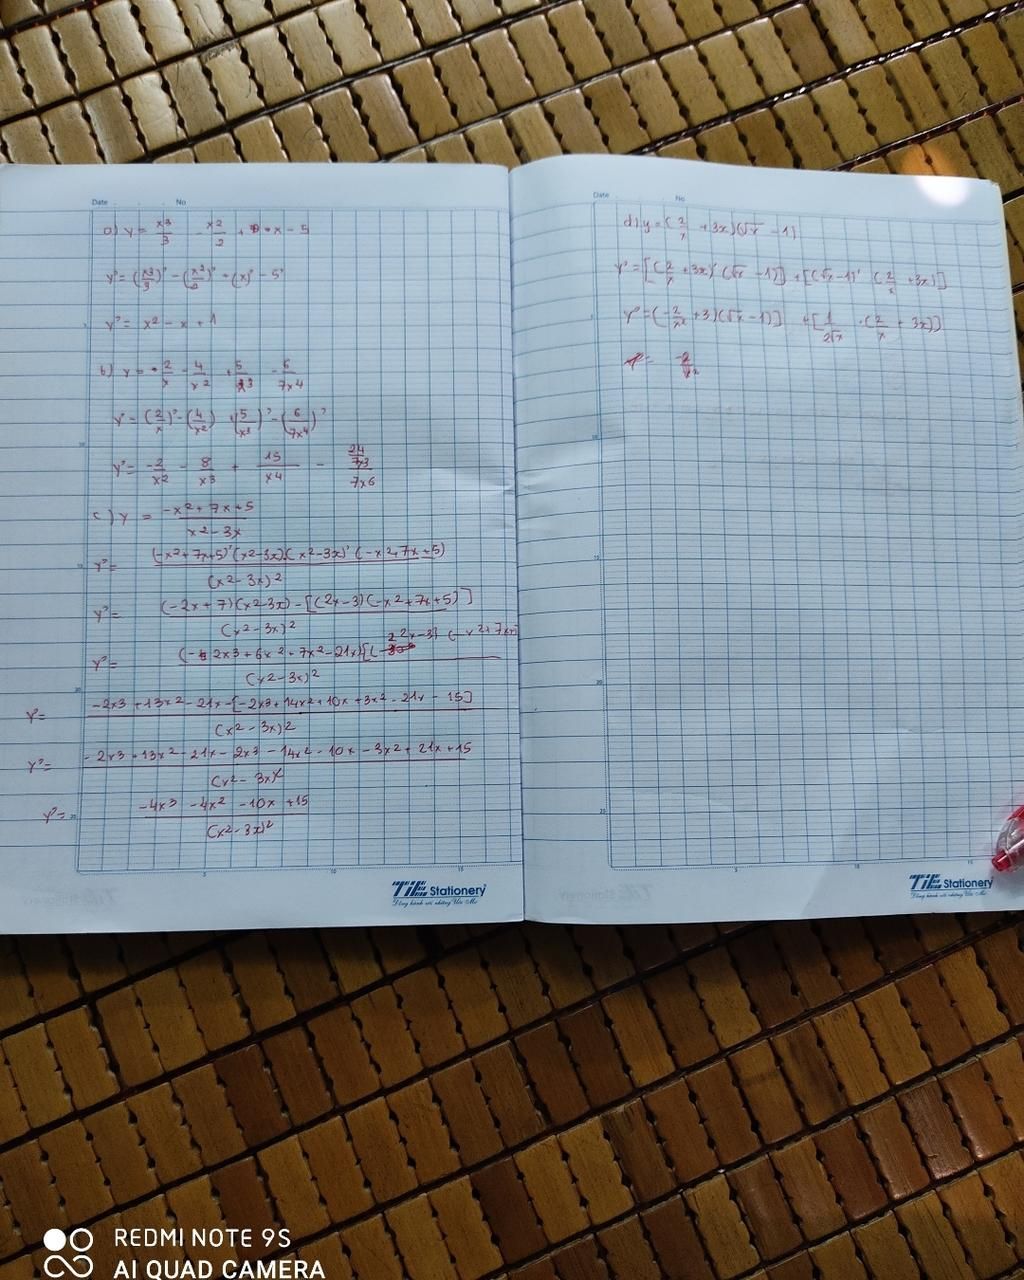 Date No
a) y = x3/3 - x2/2 + x - 5
y' = (x3/3)' - (x2/2)' + (x)' - 5'
y' = x2 - x + 1
b) y = 2/x - 4/x2 + 5/x3 - 6/7x4
y' = (2/x)' - (4/x2) + (5/x3)' - (6/7x4)'
y' = -2/x2 - 8/x3 + 15/x4 -
c) y = -x2 + 7x + 5 / x2 - 3x
y' = (-x2+7x+5)'(x2-3x) (x2-3x)' (-x2+7x+5) / (x2-3x)2
y' = (-2x+7)(x2-3x) - [(2x-3)(-x2+7x+5)] / (x2-3x)2
y' = (- 2x3 + 6x2 + 7x2 - 21x) / (x2-3x)2
y' = -2x3 + 13x2 - 21x - [-2x3 + 14x2 + 10x + 3x2 - 21x - 15] / (x2-3x)2
y' = -2x3 + 13x2 - 21x - 2x3 - 14x2 - 10x - 3x2 + 21x + 15 / (x2-3x)2
y' = -4x3 - 4x2 - 10x + 15 / (x2-3x)2
5 10 15
TiE Stationery
Date No
d) y = (2/x + 3x)(√x - 1)
y' = [(2/x + 3x)' (√x - 1)] + [(√x - 1)' (2/x + 3x)]
y' = (-2/x2 + 3)(√x - 1)] + [1/2√x . (2/x + 3x)]
5 10 15
TiE Stationery
REDMI NOTE 9S
AI QUAD CAMERA